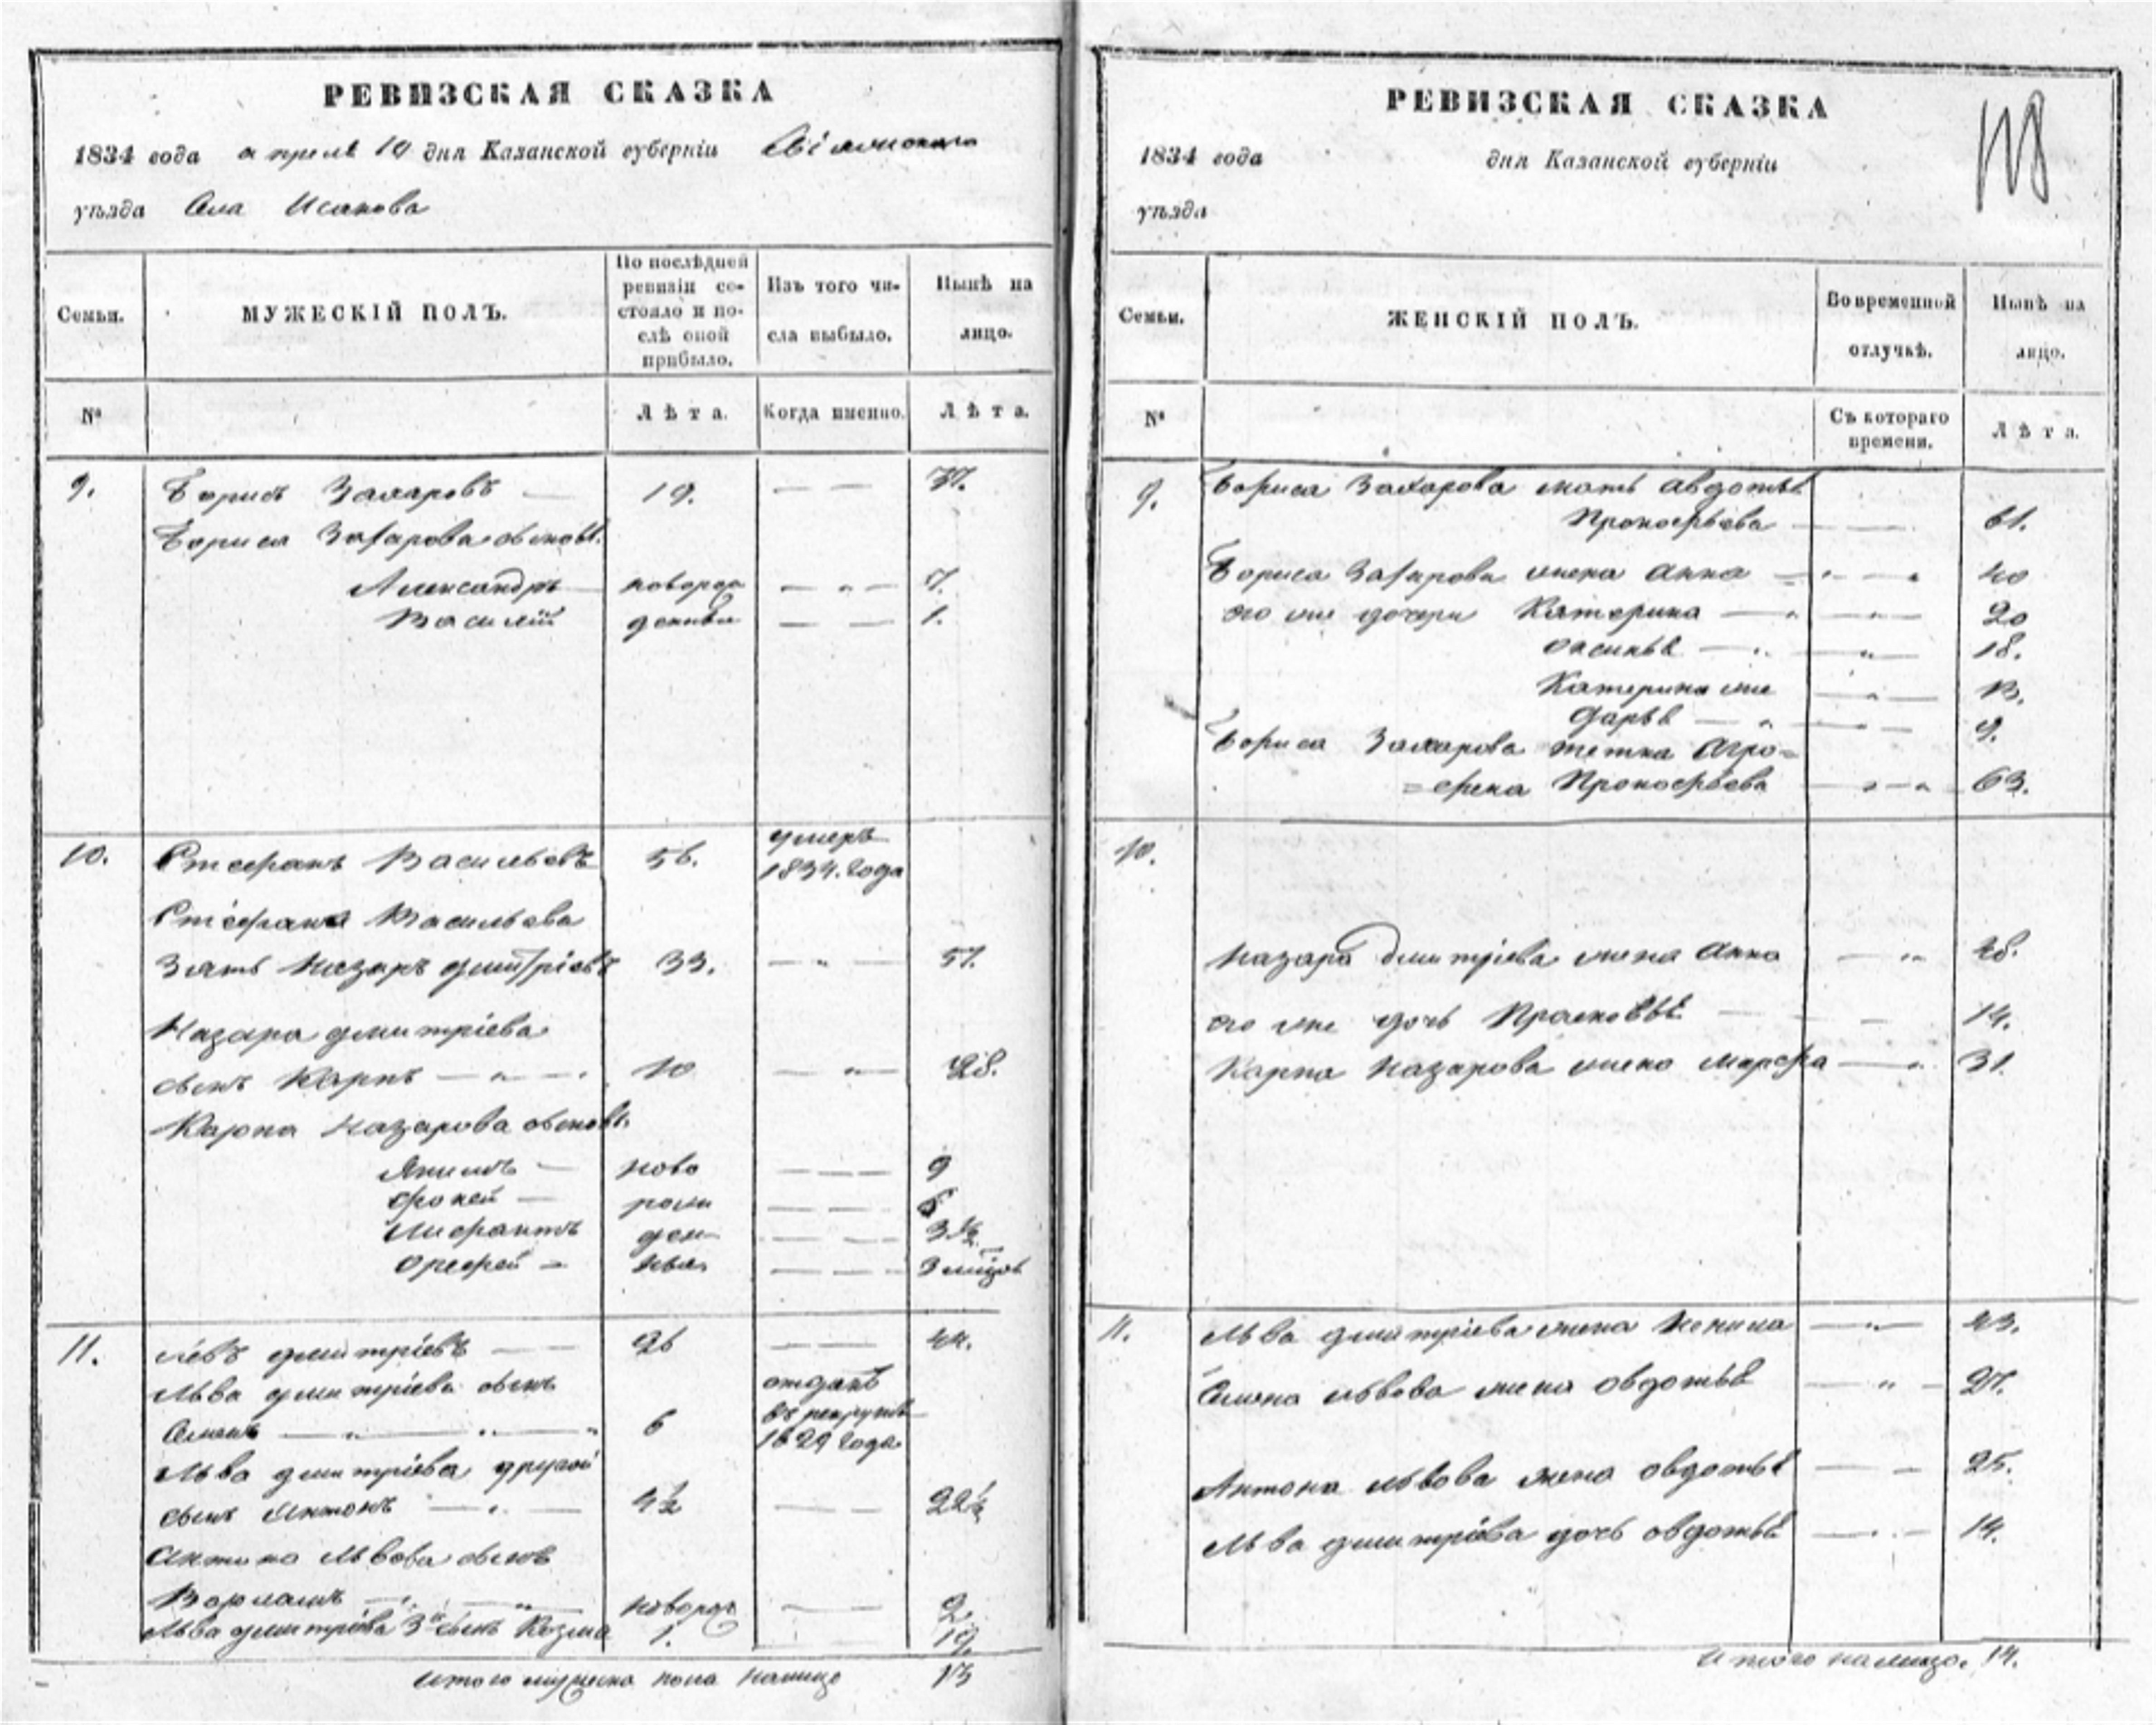 РЕВИЗСКАЯ СКАЗКА
1834 года апреля 19 дня Казанской губернiи Свiяжскаго
уѣзда Села Исакова
Семьи.
МУЖЕСКIЙ ПОЛЪ.
По послѣдней ревизiи со-
стояло и по-
слѣ оной
прибыло.
Изъ того чи-
сла выбыло.
Нынѣ на
лицо.
№
Лѣта.
Когда именно.
Лѣта.
9. Борисъ Захаровъ 19. 37.
Бориса Захарова сыновья
Александръ новорож 7.
Василiй денные 1.
10. Стефанъ Васильевъ 56. умеръ
1834. года
Стефана Васильева
Зять Назаръ Дмитрiевъ 33. 51.
Назара Дмитрiева
сынъ Карпъ 10 28.
Карпа Назарова сыновья
Якимъ ново 9
Фокей рож 6
ден 3 1/2
Орефей ные 3 мѣсяц
11. Левъ Дмитрiевъ 26 44.
Льва Дмитрiева сынъ отданъ
Семенъ 6 въ рекруты
1829 года
Льва Дмитрiева другой
сынъ Антонъ 4 1/2 22 1/2
Антона Львова сынъ
Варламъ новорож 2
Льва Дмитрiева 3й сынъ Козма 1. 19.
Итого мужеска пола налицо 13
РЕВИЗСКАЯ СКАЗКА
118
1834 года дня Казанской губернiи
уѣзда
Семьи.
ЖЕНСКIЙ ПОЛЪ.
Во временной
отлучкѣ.
Нынѣ на
лицо.
№
Съ котораго
времени.
Лѣта.
9. Бориса Захарова мать Авдотья
Прокофьева 61.
Бориса Захарова жена Анна 40
его же дочери Катерина 20
18.
Катерина же 13.
Дарья 9.
Бориса Захарова тетка Агро-
фена Прокофьева 63.
10.
Назара Дмитрiева жена Анна 48.
его же дочь Прасковья 14.
Карпа Назарова жена Марфа 31
11. Льва Дмитрiева жена 43.
Семена Львова жена Овдотья 27.
Антона Львова жена Овдотья 25.
Льва Дмитрiева дочь Овдотья 14.
Итого налицо. 14.